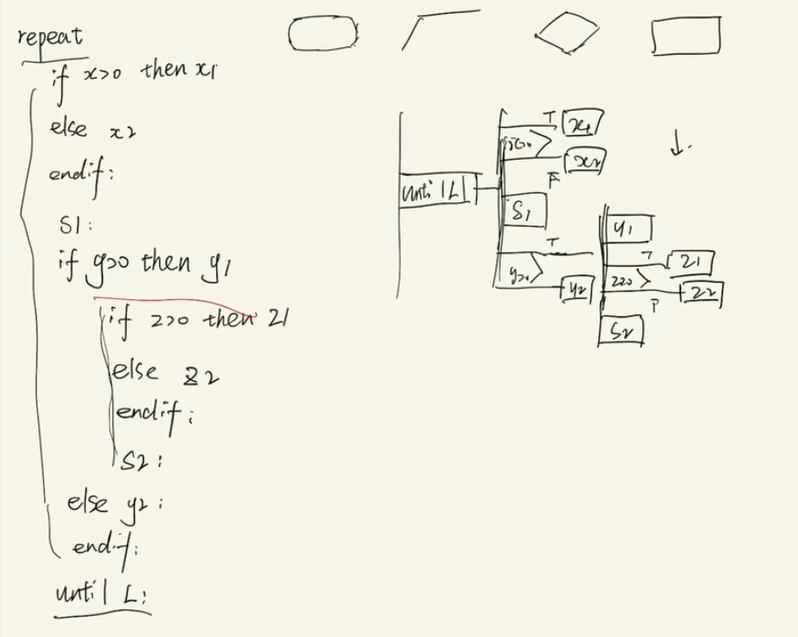 repeat
if x>0 then x1
else x2
endif:
S1:
if y>0 then y1
if z>0 then z1
else z2
endif;
S2:
else y2;
endif;
until L;
T
x1
x>0
x2
F
until L
S1
T
y>0
y2
y1
T
z1
z>0
z2
F
S2